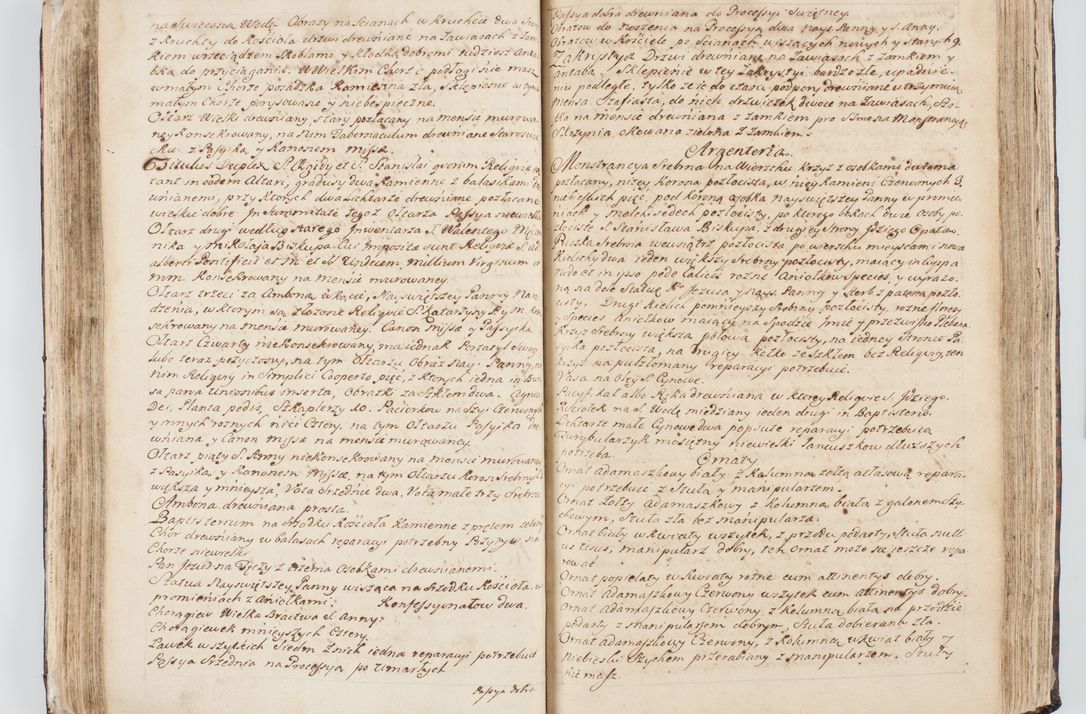 na święconą Wodę. Obrazy na Scianach w kruchcie dwa stare
z kruchty do Kościoła drzwi drewniane na Zawiasach z Zam
kiem wrzeciądzem Skoblami y kłotką dobremi tudziesz Anta
bka do przyciągania. W Wielkim Chorze podłogi nie masz
w małym Chorze posadzka Kamienna zła, Sklepienie w tym
małym Chorze porysowane y niebespieczne.
Ołtarz Wielki drewniany stary pozłacany na mensie murowa
ney Konsekrowany, na nim Tabernaculum drewniane Staroswie
ckie z Passyiką y Kanonem missæ.
Titulus Duplex S. Egidy et S. Stanislai quorum Religiæ ex
tant in eodem Altari, gradusy dwa Kamienne z balasikami dre
wnianemi, przy ktorych dwa Lichtarze drewniane pozłacane
wielkie dobre. In Summitate tegoż Ołtarza Passya niewielka
Ołtarz drugi według starego Inwentarza S. Walentego Męcze
nika y Mikołaja Biskupa. Cui Impositæ sunt Religiæ S. Ad
alberti Pontificis et M. et S. Undecim millium Virginum et
mm. Konsekrowany na mensie murowaney
Ołtarz trzeci za Amboną Nayswiętszey Panny Naro
dzenia, w ktorym są złożone Religwie S. Katarzyny P. y M. kon
sekrowany na mensie murowaney. Canon missæ y Passyika
Ołtarz Czwarty niekonsekrowany, ma iednak Portatyl swoy
lubo teraz pożyczony, na tym Ołtarzu Obraz Nay. Panny, na
nim Religwy in Simplici Cooperto pięć, z ktorych iedna in Bur
sa parva Unionibus inserta, Obrazki za Szkłem dwa. Agnus
Dei, Planta pedis, Szkaplerzy 10. Paciorkow na Szyi Czerwonych
y innych roznych nici Cztery, na tym Ołtarzu Passyika dre
wniana y Canon missæ na mensie murowaney.
Ołtarz piąty S. Anny niekonsekrowany na mensie murowaney
z Passyiką y Kanonem Missæ, na tym Ołtarzu Koron Srebrnych
większa y mnieysza, Vota srzednie dwa, Vota małe trzy srebrne
Ambona drewniana prosta.
Baptisterium na srodku Kościoła Kamienne z prętem żelaznym
Chor drewniany w balasach reparacyi potrzebny Pozytyw na
Chorze niewielki
Pan Jezus na Tęczy z trzema Osobkami drewnianemi.
Statua Nayswiętszey Panny wisząca na srzodku Kościoła w
promieniach z Aniołkami. Konfessyonałow dwa.
Chorągiew Wielka Bractwa S. Anny.
Chorągiewek mnieyszych Cztery.
Ławek wszytkich Siedm z nich iedna reparacyi potrzebuie
Passya Srzednia na Processyą po Umarłych
Passya dobra
Passya dobra drewniana do Processyi Swiętney.
Obrazow do noszenia na Processyą dwa Nays. Panny y S. Anny.
Obrazow w Kościele po Scianach wiszących nowych y starych 9.
Zakrystyi Drzwi drewniane na Zawiasach z Zamkiem y
antabą. Sklepienie w tey Zakrystyi bardzo złe, upadnie
niu podległe, tylko ze ie do czasu podpory drewniane utrzymuią
Mensa Szafiasta, do nich drzwiczek dwoie na Zawiasach, Szaf
ka na mensie drewniana z Zamkiem pro Monstrancyą
Skrzynia okowana zielona z Zamkiem.
Argenteria.
Monstrancya Srebrna na Wierzchu Krzyż z osobkami dwiema
pozłacany, niżey korona pozłocista, w niey Kamieni Czerwonych 3.
niebieskich pięć, pod koroną osobka Nayswiętszey Panny w promie
niach y melchisedech pozłocisty, po ktorego bokach dwie osoby po
złociste S. Stanisława Biskupa, z drugiey strony Idziego Opata
Puszka Srebrna wewnątrz pozłocista po wierzchu mieyscami nowa
Kielichy dwa ieden większy Srebrny pozłocisty, maiący in Cuppa
nudo et in ipso pede Calicis rozne Aniołkow species, y wyrażo
ną na dole Statuę P. Jezusa y Nays. Panny y Herb z pateną pozło
cistą. Drugi Kielich pomnieyszy Srebrny pozłocisty, rozne flores
y species Aniołkow maiący na Spodzie Jmie y przezwisko Plebana
Krzyż Srebrny większą połową pozłocisty, na iedney stronie Pa
syika pozłocista, na drugiey Kołko ze Szkłem bez Religwy, ten
Krzyż na puł złomany reparacyi potrzebuie.
Vasa na Oley S. Cynowe.
Pacyfikał albo Rączka drewniana w ktorey Religwie S. Idziego.
Kociołek na S. Wodę miedziany ieden drugi in Baptisterio.
Lichtarze małe Cynowe dwa popsute reparacyi potrzebuią
Turybularzyk mosiężny niewielki Łancuszkow dłuższych
potrzeba.
Ornaty
Ornat Adamaszkowy biały z kolumną żołtą atłasową repara
cyi potrzebuie z Stułą y manipularzem.
Ornat żołty Adamaszkowy z kolumną białą z galonem Szy
chowym, Stuła zła bez manipularza.
Ornat biały w kwiaty wszytek, z przodu podarty, Stuła null
us usus, manipularz dobry, ten Ornat może się ieszcze repa
rować
Ornat popielaty w kwiaty rożne cum attinentys dobry.
Ornat Adamaszkowy Czerwony wszytek cum attinentys dobry.
Ornat Adamaszkowy Czerwony z kolumną białą na przodzie
podarty z manipularzem dobrym, Stuła dobierana zła.
Ornat Adamaszkowy Czerwony, z kolumną w kwiat biały y
niebieski Szychem przerabiany z manipularzem. Stuły
nie masz.